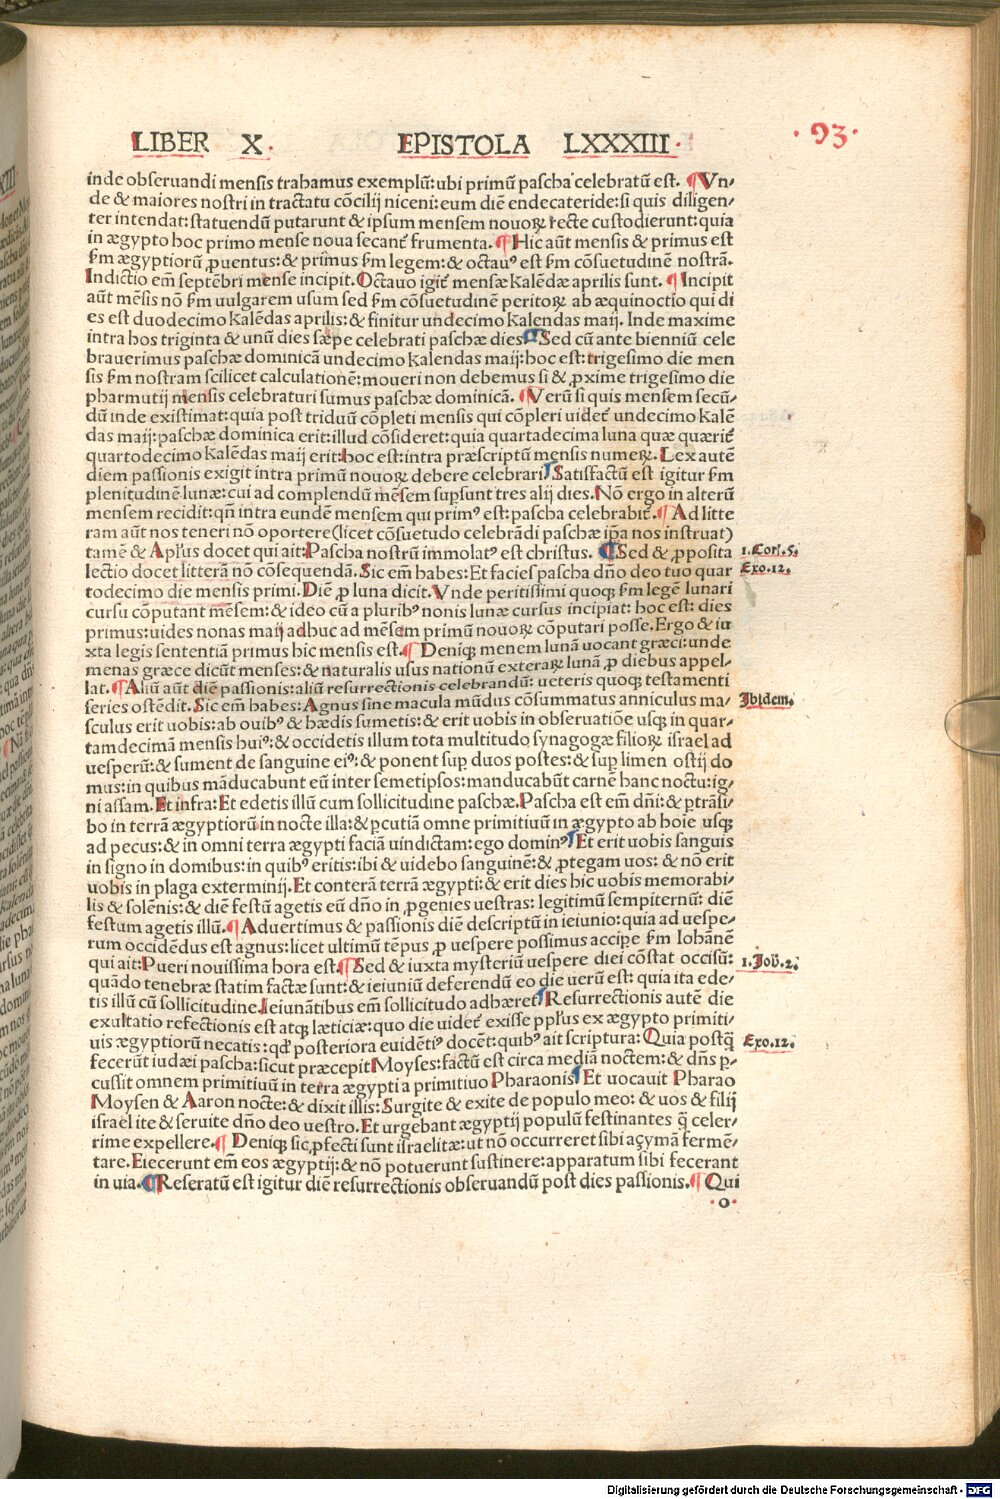 LIBER X. EPISTOLA LXXXIII.
·93·
inde obseruandi mensis trahamus exemplū: ubi primū pascha celebratū est. ¶ Vn-
de & maiores nostri in tractatu cōcilij niceni: eum diē endecateride: si quis diligen-
ter intendat: statuendū putarunt & ipsum mensem nouoꝝ recte custodierunt: quia
in ægypto hoc primo mense noua secant᷑ frumenta. ¶ Hic aūt mensis & primus est
ẜm ægyptiorū ꝓuentus: & primus ẜm legem: & octauꝰ est ẜm cōsuetudinē nostrā.
Indictio em̄ septēbri mense incipit. Octauo igit᷑ mensæ kalēdæ aprilis sunt. ¶ Incipit
aūt mēsis nō ẜm uulgarem usum sed ẜm cōsuetudinē peritoꝝ ab æquinoctio qui di
es est duodecimo kalēdas aprilis: & finitur undecimo kalendas maij. Inde maxime
intra hos triginta & unū dies sæpe celebrati paschæ dies ¶ Sed cū ante bienniū cele
brauerimus paschæ dominicā undecimo kalendas maij: hoc est: trigesimo die men
sis ẜm nostram scilicet calculationē: moueri non debemus si & ꝓxime trigesimo die
pharmutij mensis celebraturi sumus paschæ dominicā. ¶ Verū si quis mensem secū-
dū inde existimat: quia post triduū cōpleti mensis qui cōpleri uidet᷑ undecimo kalē
das maij: paschæ dominica erit: illud cōsideret: quia quartadecima luna quæ quærit᷑
quartodecimo kalēdas maij erit: hoc est: intra præscriptū mensis numeꝝ. Lex autē
diem passionis exigit intra primū nouoꝝ debere celebrari ¶ Satisfactū est igitur ẜm
plenitudinē lunæ: cui ad complendū mēsem suꝑsunt tres alij dies. Nō ergo in alterū
mensem recidit: qn̄ intra eundē mensem qui primꝰ est: pascha celebrabit᷑. ¶ Ad litte
ram aūt nos teneri nō oportere (licet cōsuetudo celebrādi paschæ ip̄a nos instruat)
tamē & Apl̄us docet qui ait: Pascha nostrū immolatꝰ est christus. ¶ Sed & ꝓposita
1. Cori. 5.
lectio docet litterā nō cōsequendā. Sic em̄ habes: Et facies pascha dn̄o deo tuo quar
Exo. 12.
todecimo die mensis primi. Diē ꝓ luna dicit. Vnde peritissimi quoqꝫ ẜm legē lunari
cursu cōputant mēsem: & ideo cū a pluribꝰ nonis lunæ cursus incipiat: hoc est: dies
primus: uides nonas maij adhuc ad mēsem primū nouoꝝ cōputari posse. Ergo & iu
xta legis sententiā primus hic mensis est. ¶ Deniqꝫ menem lunā uocant græci: unde
menas græce dicūt menses: & naturalis usus nationū exteraꝝ lunā ꝓ diebus appel-
lat. ¶ Aliū aūt diē passionis: aliū resurrectionis celebrandū: ueteris quoqꝫ testamenti
series ostēdit. Sic em̄ habes: Agnus sine macula mūdus cōsummatus anniculus ma-
Ibidem.
sculus erit uobis: ab ouibꝰ & hædis sumetis: & erit uobis in obseruatiōe usqꝫ in quar-
tamdecimā mensis huiꝰ: & occidetis illum tota multitudo synagogæ filioꝝ israel ad
uesperū: & sument de sanguine eiꝰ: & ponent suꝑ duos postes: & suꝑ limen ostij do
mus: in quibus māducabunt eū inter semetipsos: manducabūt carnē hanc noctu: ig-
ni assam. Et infra: Et edetis illū cum sollicitudine paschæ. Pascha est em̄ dn̄i: & ꝑtrāsi-
bo in terrā ægyptiorū in nocte illa: & ꝑcutiā omne primitiuū in ægypto ab hoīe usqꝫ
ad pecus: & in omni terra ægypti faciā uindictam: ego dominꝰ ¶ Et erit uobis sanguis
in signo in domibus: in quibꝰ eritis: ibi & uidebo sanguinē: & ꝓtegam uos: & nō erit
uobis in plaga exterminij. Et conterā terrā ægypti: & erit dies hic uobis memorabi-
lis & solēnis: & diē festū agetis eū dn̄o in ꝓgenies uestras: legitimū sempiternū: diē
festum agetis illū. ¶ Aduertimus & passionis diē descriptū in ieiunio: quia ad uespe-
rum occidēdus est agnus: licet ultimū tēpus ꝓ uespere possimus accipe ẜm Iohānē
qui ait: Pueri nouissima hora est. ¶ Sed & iuxta mysteriū uespere diei cōstat occisū:
1. Joh̄. 2.
quādo tenebræ statim factæ sunt: & ieiuniū deferendū eo die uerū est: quia ita ede-
tis illū cū sollicitudine. Ieiunātibus em̄ sollicitudo adhæret ¶ Resurrectionis autē die
exultatio refectionis est atqꝫ læticiæ: quo die uidet᷑ exisse pp̄l̄us ex ægypto primiti-
uis ægyptiorū necatis: qd̕ posteriora euidēti⁹ docēt: quibꝰ ait scriptura: Quia postq̄
Exo. 12.
fecerūt iudæi pascha: sicut præcepit Moyses: factū est circa mediā noctem: & dn̄s ꝑ-
cussit omnem primitiuū in terra ægypti a primitiuo Pharaonis ¶ Et uocauit Pharao
Moysen & Aaron nocte: & dixit illis: Surgite & exite de populo meo: & uos & filij
israel ite & seruite dn̄o deo uestro. Et urgebant ægyptij populū festinantes q̄ celer-
rime expellere. ¶ Deniqꝫ sic ꝓfecti sunt israelitæ: ut nō occurreret sibi açymā fermē-
tare. Eiecerunt em̄ eos ægyptij: & nō potuerunt sustinere: apparatum sibi fecerant
in uia. ¶ Reseratū est igitur diē resurrectionis obseruandū post dies passionis. ¶ Qui
·o·
Digitalisierung gefördert durch die Deutsche Forschungsgemeinschaft - DFG